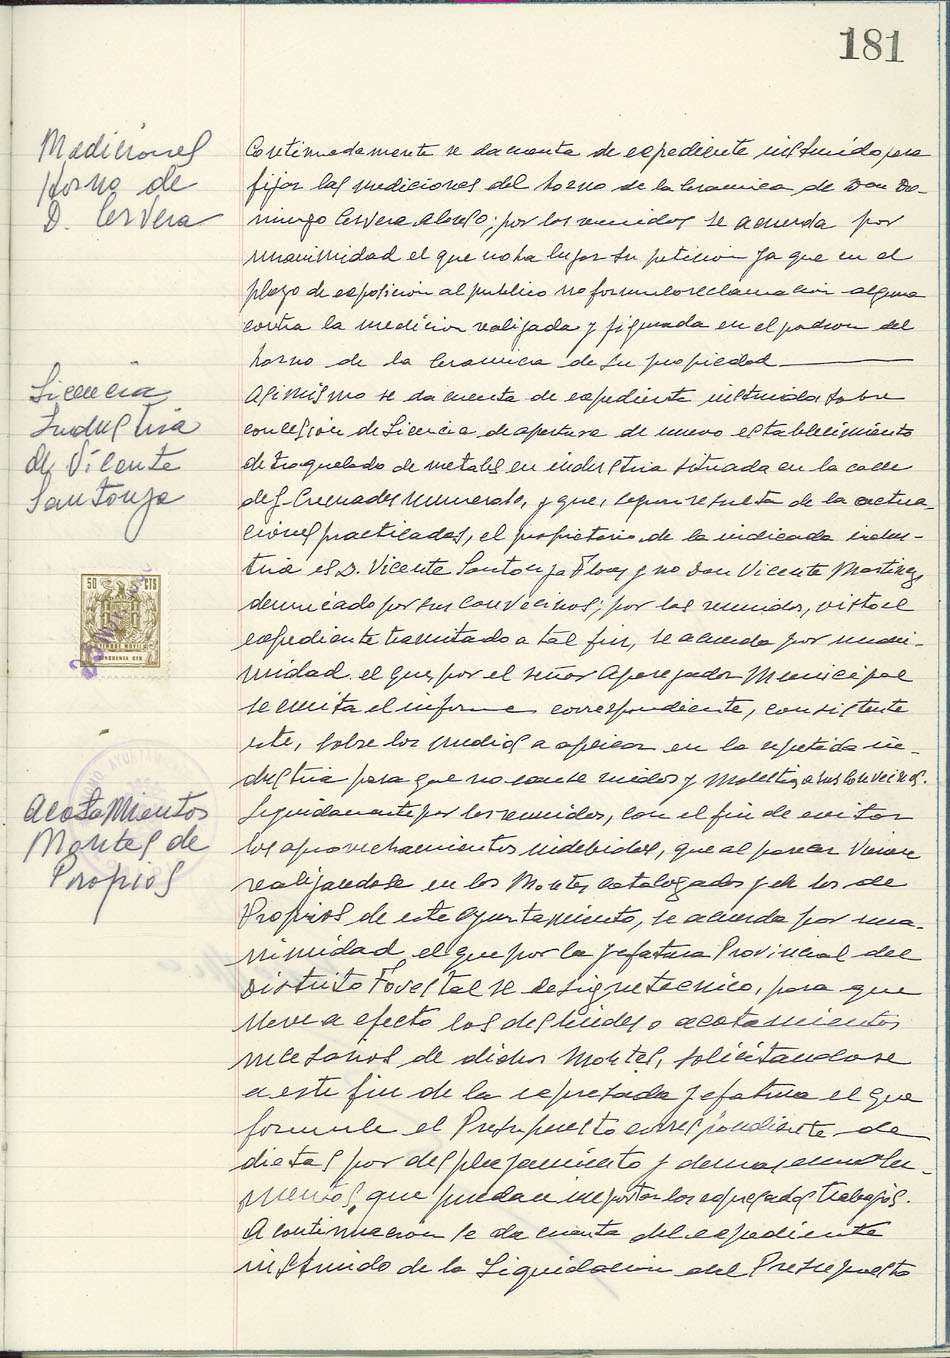 181
Mediciones
Horno de
D. Cervera
Continuadamente se da cuenta de expediente instruido para
fijar las mediciones del horno de la Ceramica de Don Do-
mingo Cervera Alonso; por los reunidos se acuerda por
unanimidad el que no ha lugar su peticion ya que en el
plazo de exposición al publico no formulo reclamacion alguna
contra la medicion realizada y figurada en el padron del
horno de la Ceramica de su propiedad
Licencia
Industria
de Vicente
Santonja
Asimismo se da cuenta de expediente instruido sobre
concesion de Licencia de apertura de nuevo establecimiento
de troquelado de metales en industria situada en la calle
de J. Cremades numero, y que, segun resulta de la actua-
ciones practicadas, el propietario de la indicada indus-
tria es D. Vicente Santonja Flores y no Don Vicente Martinez
denunciado por sus convecinos; por los reunidos, visto el
expediente tramitado a tal fin, se acuerda por unani-
midad el que por el señor Aparejador Municipal
se emita el informe correspondiente, consistente
este, sobre los medios a aplicar en la repetida in-
dustria para que no cause ruidos y molestias a sus convecinos.
50 CTS
Acotamientos
Montes de
Propios
Seguidamente por los reunidos, con el fin de evitar
los aprovechamientos indebidos, que al parecer vienen
realizandose en los Montes Catalogados y de los de
Propios de este Ayuntamiento, se acuerda por una-
nimidad el que por la Jefatura Provincial del
Distrito Forestal se designe tecnico, para que
lleve a efecto los deslindes o acotamientos
necesarios de dichos Montes, solicitandose
a este fin de la expresada Jefatura el que
formule el Presupuesto correspondiente de
dietas por desplazamiento y demas emolu-
mentos, que puedan importar los expresados trabajos.
A continuacion se da cuenta del expediente
instruido de la Liquidacion del Presupuesto